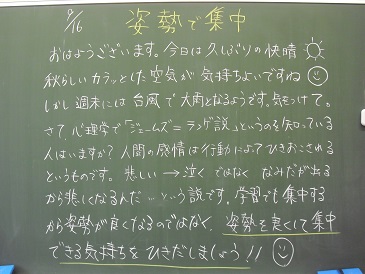 9/16 姿勢で集中
おはようございます。今日は久しぶりの快晴
秋らしいカラッとした空気が気持ちよいですね
しかし週末には台風で大雨となるようです。気をつけて。
さて、心理学で「ジェームズ＝ランゲ説」というのを知っている
人はいますか？人間の感情は行動によってひきおこされる
というものです。悲しい→泣く ではなく なみだが出る
から悲しくなるんだ…という説です。学習でも集中する
から姿勢が良くなるのではなく、姿勢を良くして集中
できる気持ちをひきだしましょう!!